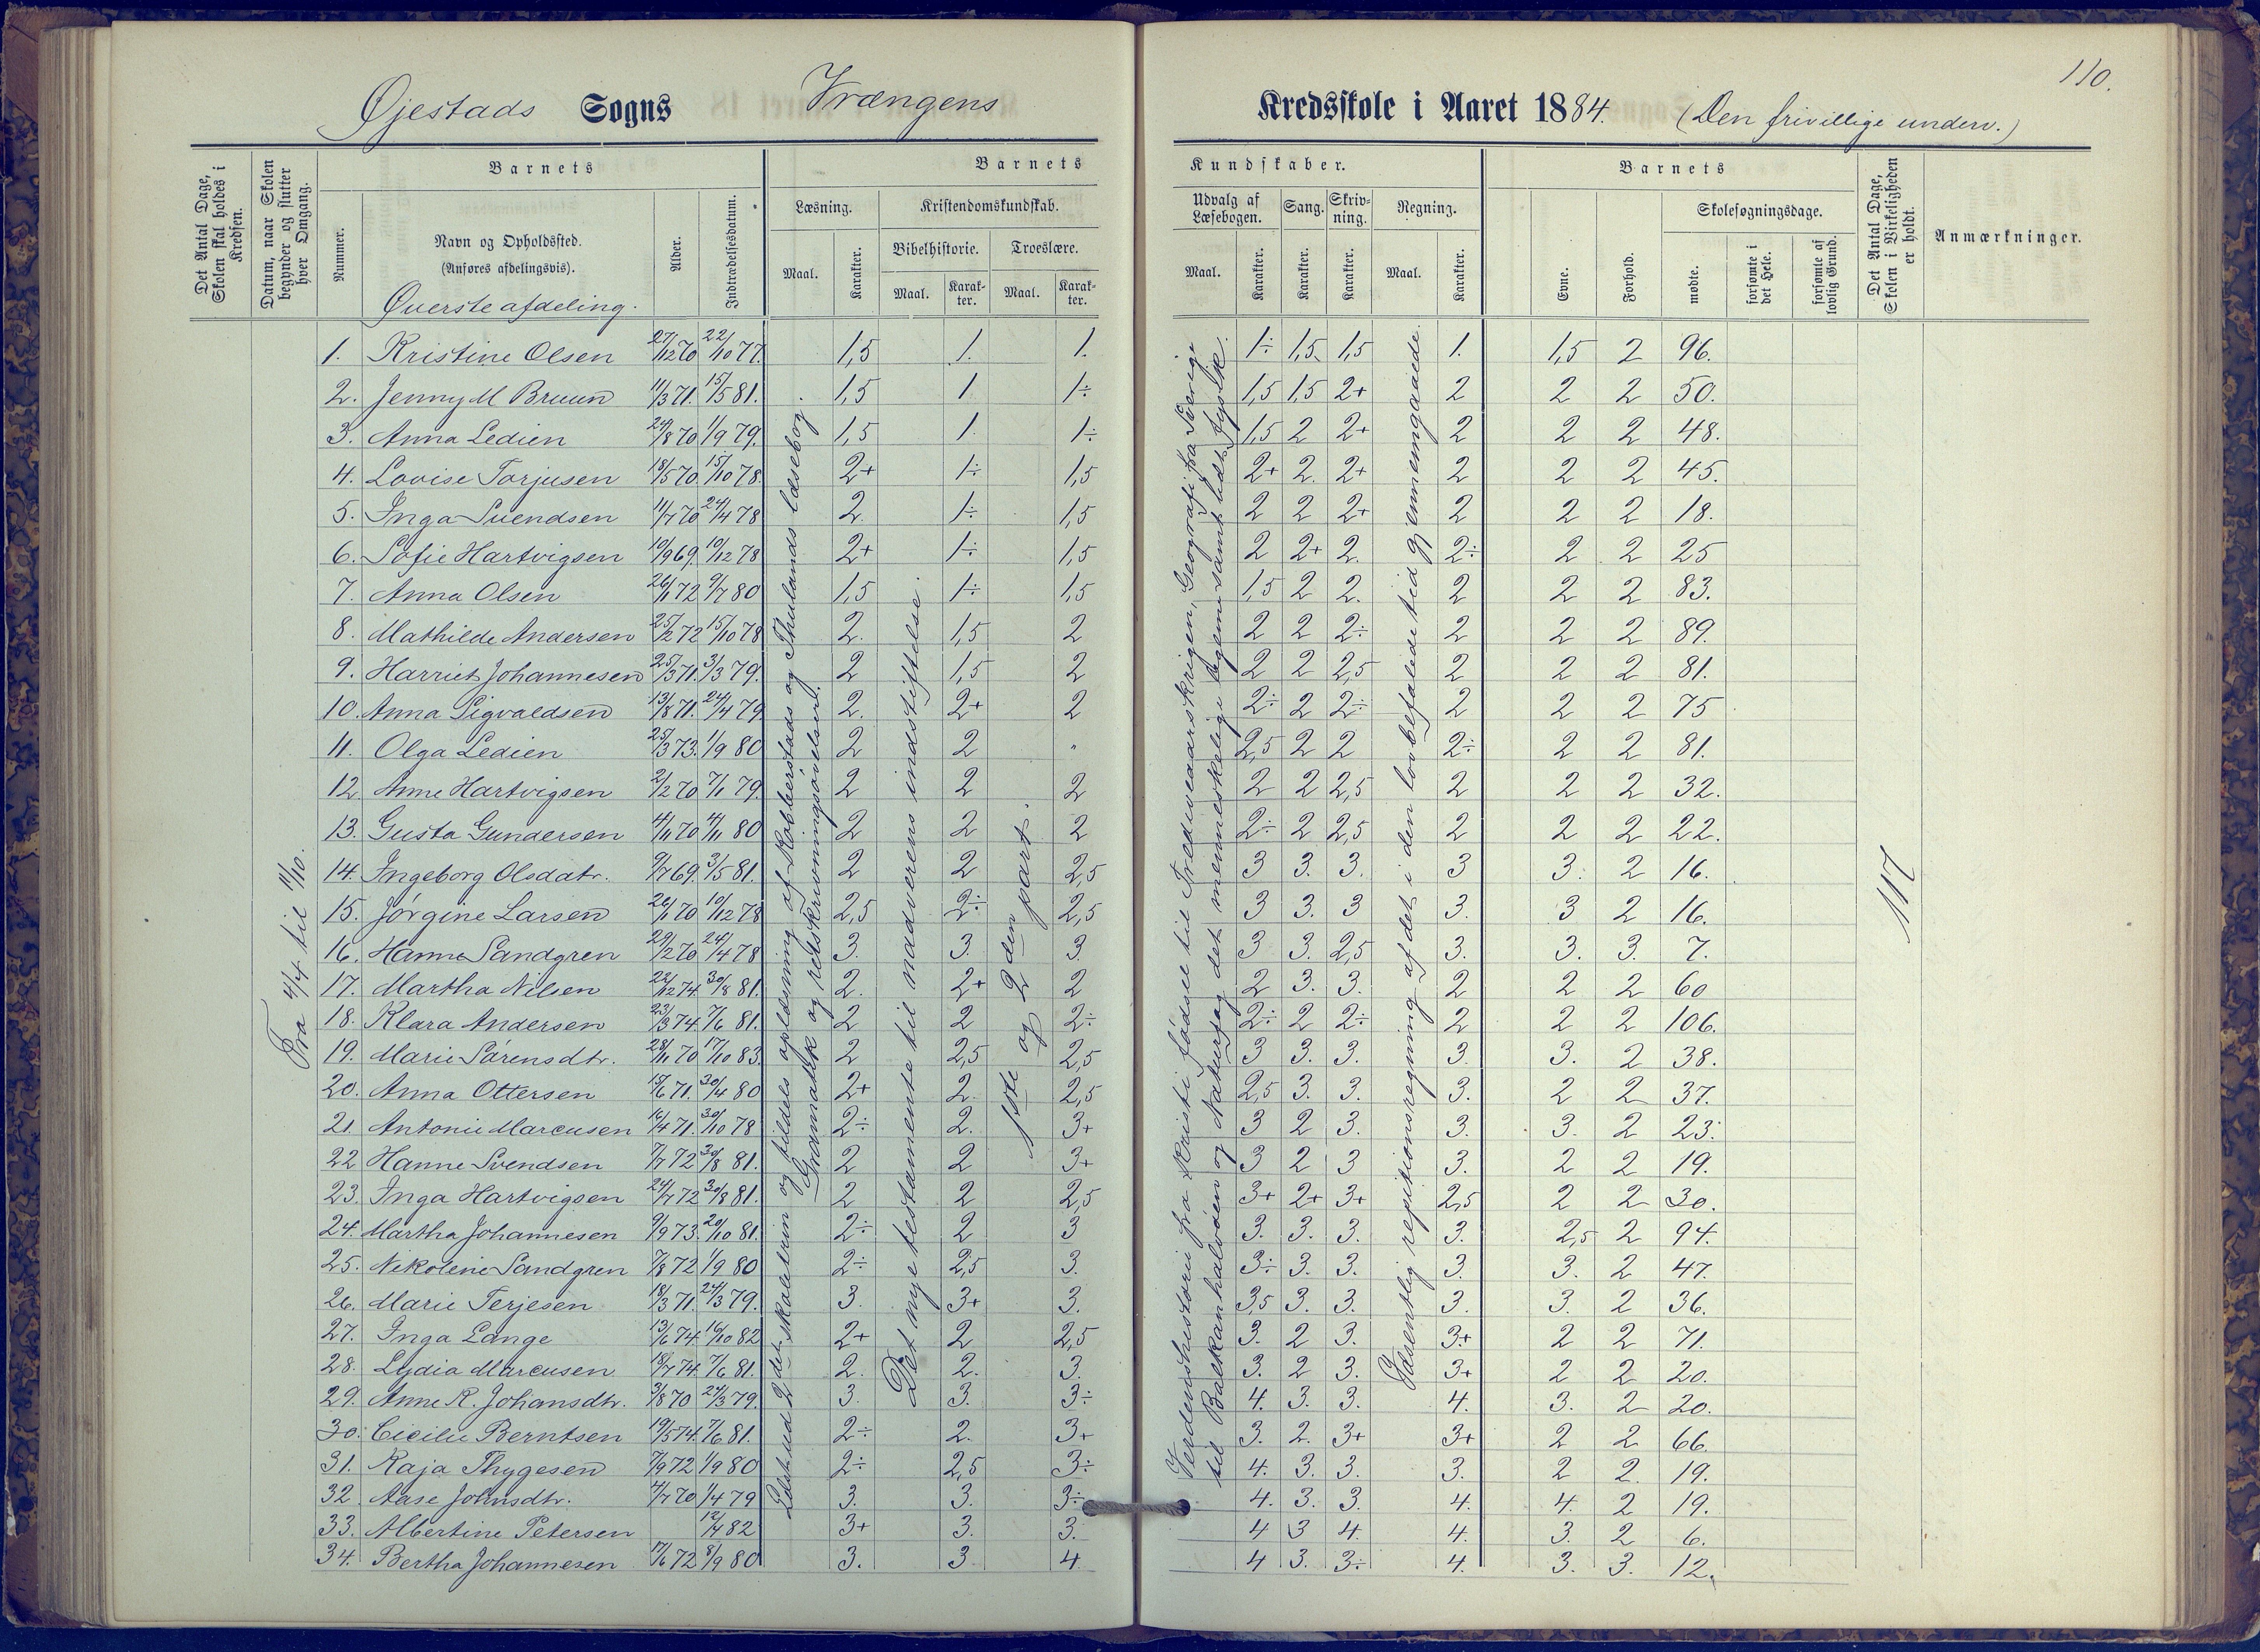 110.
Øjestads Sogns Vrængens Kredsskole i Aaret 1884. (Den frivillige underv.)
Det Antal Dage, Skolen skal holdes i Kredsen.
Datum, naar Skolen begynder og slutter hver Omgang.
Barnets
Nummer.
Navn og Opholdssted.
(Anføres afdelingsvis).
Øverste afdeling.
Alder.
Indtrædelsesdatum.
Barnets Kundskaber.
Læsning.
Maal.
Karakter.
Kristendomskundskab.
Bibelhistorie.
Maal.
Karakter.
Troeslære.
Maal.
Karakter.
Udvalg af Læsebogen.
Maal.
Karakter.
Sang.
Karakter.
Skrivning.
Karakter.
Regning.
Maal.
Karakter.
Barnets
Evne.
Forhold.
Skolesøgningsdage.
mødte.
forsømte i det Hele.
forsømte af lovlig Grund.
Det Antal Dage, Skolen i Virkeligheden er holdt.
Anmærkninger.
1. Kristine Olsen 27/12 70 22/10 77. 1,5 1. 1. 1÷ 1,5 1,5 1. 1,5 2 96.
2. Jenny M Bruun 11/3 71. 15/5 81. 1,5 1 1÷ 1,5 1,5 2+ 2 2 2 50.
3. Anna Ledien 24/8 70 1/9 79. 1,5 1 1÷ 1,5 2 2+ 2 2 2 48.
4. Lovise Torjusen 18/5 70. 15/10 78. 2+ 1÷ 1,5 2+ 2 2+ 2 2 2 45.
5. Inga Svendsen 11/7 70 24/4 78 2. 1÷ 1,5 2 2 2+ 2 2 2 18.
6. Sofie Hartvigsen 10/9 69. 10/12 78 2+ 1÷ 1,5 2 2+ 2. 2÷ 2 2 25
7. Anna Olsen 26/1 72 9/7 80 1,5 1÷ 1,5 1,5 2 2. 2 2 2 83.
8. Mathilde Andersen 25/2 72 15/10 78 2. 1,5 2 2 2 2÷ 2 2 2 89.
9. Harriet Johannesen 25/3 71. 3/3 79. 2 1,5 2 2 2 2,5 2 2 2 81.
10. Anna Sigvaldsen 13/8 71. 24/4 79 2. 2+ 2 2÷ 2 2÷ 2 2 2 75
11. Olga Ledien 25/3 73. 1/9 80 2 2 " 2,5 2 2 2÷ 2 2 81.
12. Anne Hartvigsen 2/2 70 7/1 79. 2 2 2 2 2 2,5 2 2 2 32.
13. Gusta Gundersen 4/11 70 4/11 80 2 2 2 2÷ 2 2,5 2 2 2 22.
14. Ingeborg Olsdatr. 9/7 69. 3/5 81. 2 2 2,5 3 3. 3. 3 3. 2 16.
15. Jørgine Larsen 26/1 70 10/12 78 2,5 2÷ 2,5 3 3. 3 3. 3 2 16.
16. Hanna Sandgren 29/2 70 24/4 78 3. 3. 3. 3 3. 2,5 3. 3. 3. 7.
17. Martha Nilsen 22/12 74. 30/8 81. 2. 2+ 2 2 3. 3. 2 2 2 60
18. Klara Andersen 23/3 74. 7/6 81. 2 2 2÷ 2÷ 2 2÷ 2 2 2 106.
19. Marie Sørensdtr. 28/11 70 17/10 83. 2 2,5 2,5 3 3. 3. 3. 3. 2 38.
20. Anna Ottersen 15/6 71. 30/4 80 2+ 2. 2,5 2,5 3. 3. 3. 2 2 37.
21. Antonie Marcusen 16/4 71. 30/10 78 2÷ 2. 3+ 3 2 3. 3. 3. 2 23.
22 Hanne Svendsen 7/7 72 30/8 81. 2 2 3+ 3 2 3 3. 2 2 19.
23. Inga Hartvigsen 24/7 72 30/8 81. 2 2 2,5 3+ 2+ 3+ 2,5 2 2 30.
24. Martha Johannesen 9/9 73. 20/10 81. 2÷ 2 3 3. 3. 3. 3. 2,5 2 94.
25. Nikoline Sandgren 7/8 72 1/9 80 2÷ 2,5 3. 3÷ 3. 3. 3. 3. 2 47.
26. Marie Terjesen 18/3 71. 24/3 79. 3. 3+ 3. 3,5 3. 3. 3. 3. 2 36.
27. Inga Lange 13/6 74. 16/10 82 2+ 2 2,5 3. 2 3. 3+ 2 2 71.
28. Lydia Marcusen 18/7 74. 7/6 81. 2. 2. 3. 3. 2 3. 3+ 2 2 20.
29. Anne R. Johansdtr. 3/8 70 24/3 79. 3. 3. 3÷ 4. 3. 3. 4. 3. 2 20.
30. Cicilie Berntsen 19/5 74. 7/6 81. 2÷ 2. 3+ 3. 2. 3+ 3+ 2 2 66.
31. Kaja Thygesen 7/9 72 1/9 80 2÷ 2,5 3÷ 4. 3. 3. 3. 2 2. 19.
32 Aase Johnsdtr. 4/7 70 1/4 79 3. 3. 3÷ 4. 3. 3. 4. 4. 2 19.
33. Albertine Petersen 12/4 82 3+ 3. 3. 4 3 4. 4. 3. 2 6.
34. Bertha Johannesen 17/6 72 8/9 80 3. 3 4 4 3. 3÷ 4. 3. 3. 12.
Fra 4/4 til 11/10.
2det skoletrin og tildels oplæsning af Robberstads og Thulands læsebog.
Gramatik og retskrivningsøvelser.
Det nye testamente til nadverens indstiftelse.
1ste og 2den part.
Verdenshistorie fra Kristi fødsel til Trediveaarskrigen, Geografi fra Sverige
til Balkanhalvøen og Naturfag det menneskelige legem samt lidt fysik.
Væsentlig repitionsregning af det i den lovbefalede tid gjennemgaaede.
117